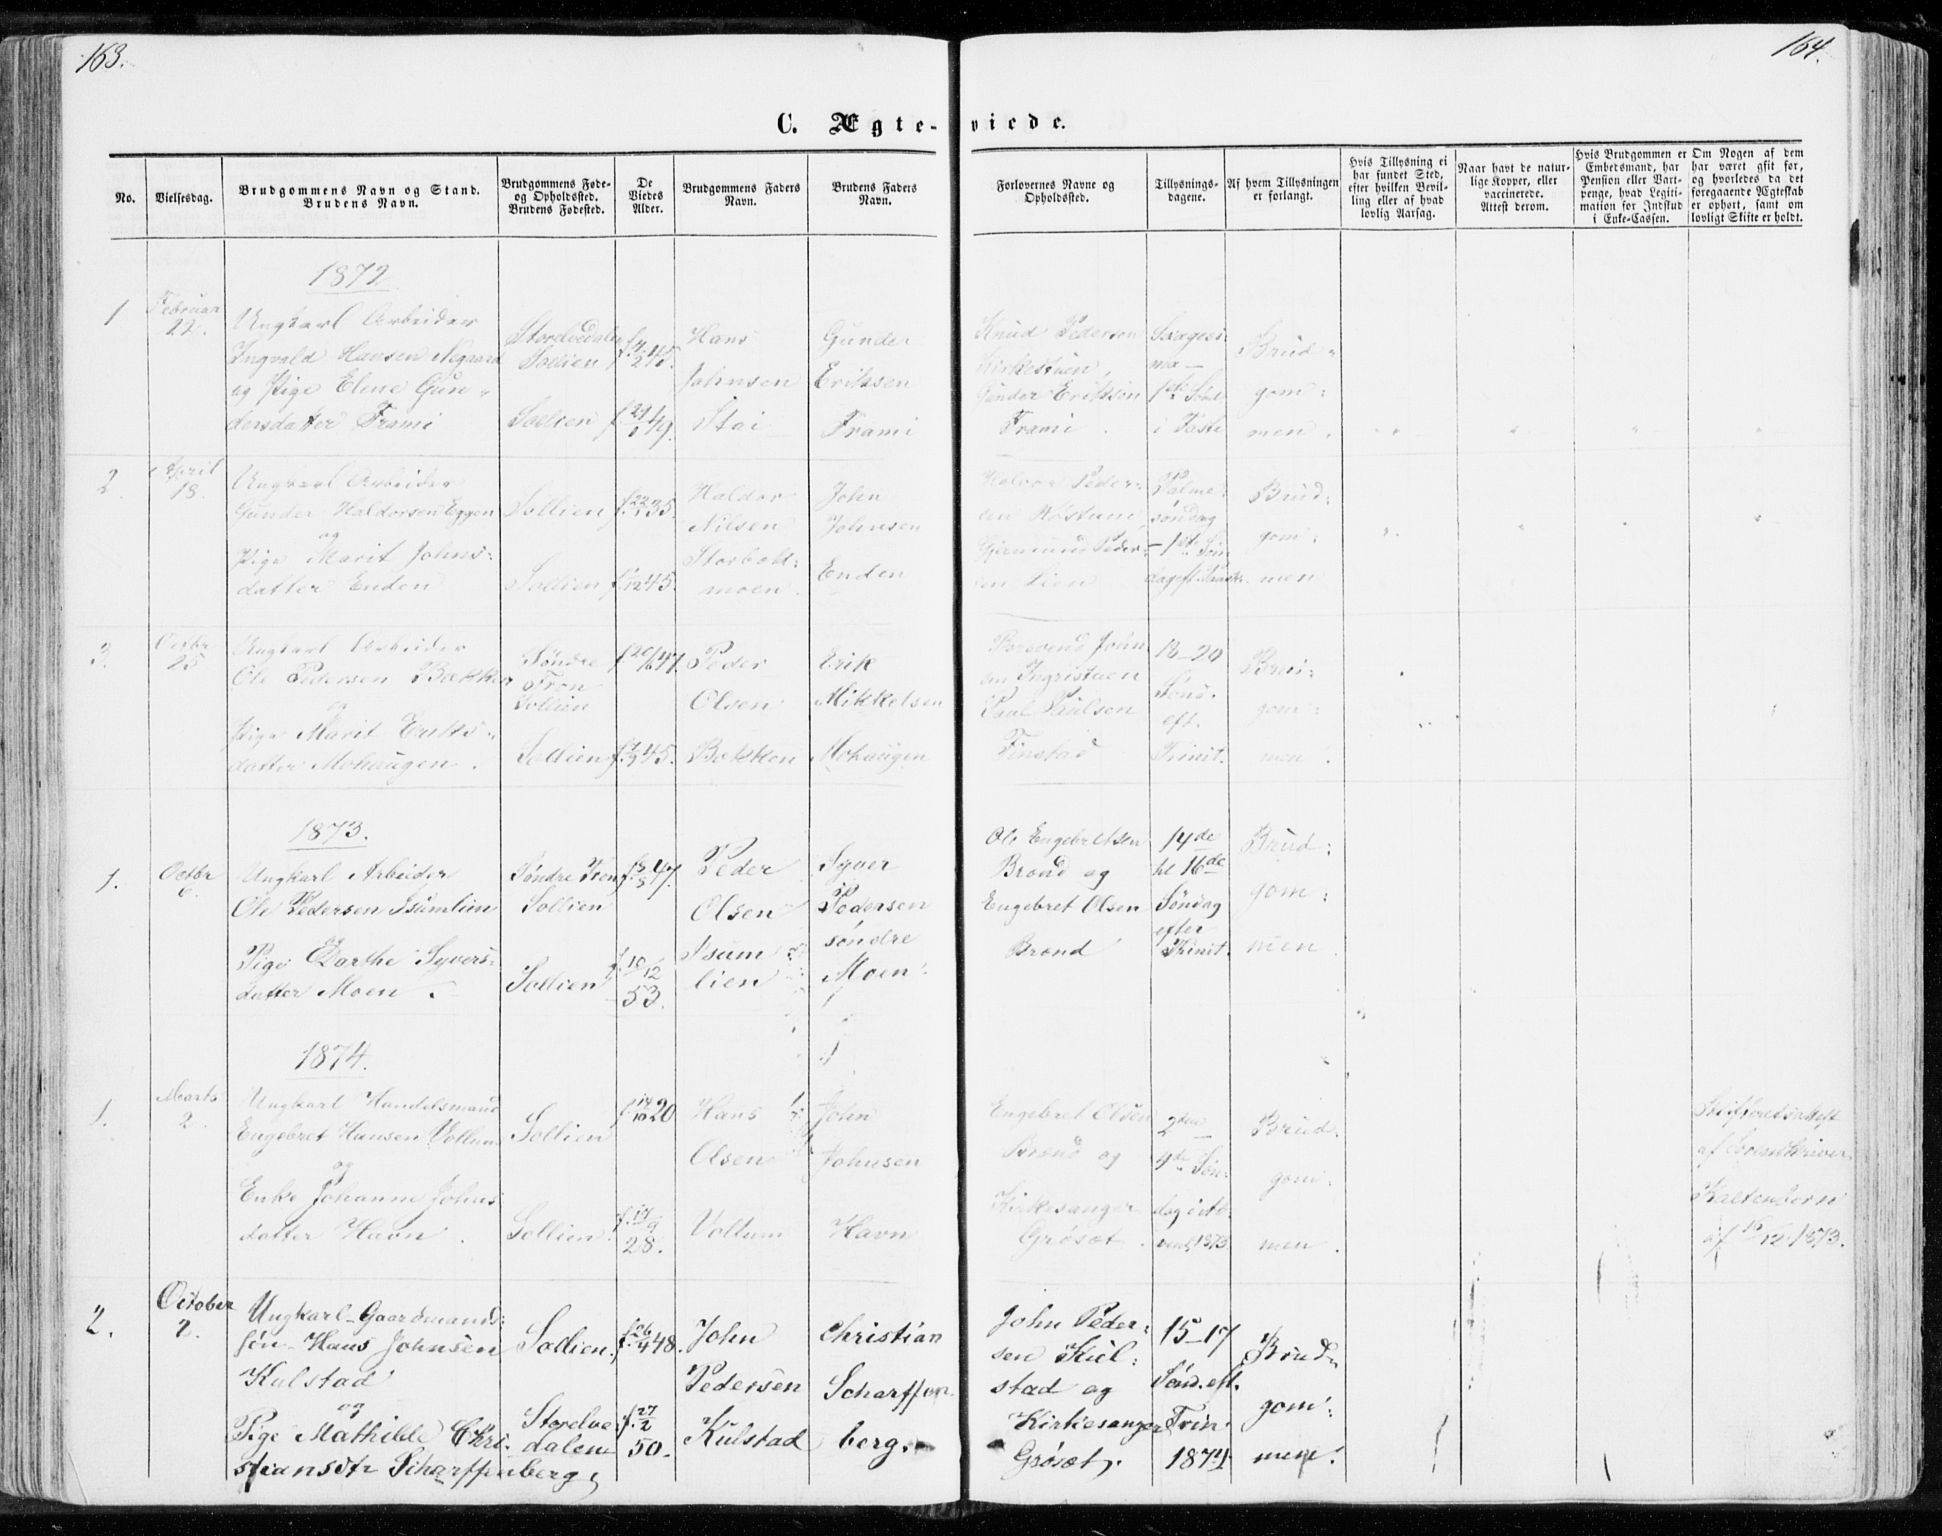 163.
164.
C. Ægte-viede.
No.
Vielsesdag.
Brudgommens Navn og Stand.
Brudens Navn.
Brudgommens Føde-
og Opholdssted.
Brudens Fødested.
De
Viedes
Alder.
Brudgommens Faders
Navn.
Brudens Faders
Navn.
Forlovernes Navne og
Opholdssted.
Tillysnings-
dagene.
Af hvem Tillysningen
er forlangt.
Hvis Tillysning ei
har fundet Sted,
efter hvilken Bevil-
ling eller af hvad
lovlig Aarsag.
Naar havt de natur-
lige Kopper, eller
vaccinerede.
Attest derom.
Hvis Brudgommen er
Embedsmand, har
Pension eller Vart-
penge, hvad Legiti-
mation for Indskud
i Enke-Cassen.
Om Nogen af dem
har været gift før,
og hvorledes da det
foregaaende Ægteskab
er ophørt, samt om
lovligt Skifte er holdt.
1872
1
Februar
22.
Ungkarl Arbeider
Ingvald Hansen Negaard
og Pige Elene Gun-
dersdatter Frami
Storelvedalen
Sollien
Sollien
Hans
Johnsen
Stai
Gunder
Eriksen
Frami
Knud Pedersen
Kirkestuen,
Gunder Eriksen
Frami.
Sexagesi-
ma -
1ste Sønd.
i Faste
Brud-
gom-
men.
2.
April
18.
Ungkarl Arbeider
Gunder Haldorsen Eggen
og
Pige Marit Johns-
datter Enden
Sollien
Sollien
f. 22/1 35.
f. /12 45.
Haldor
Nilsen
Storbekk-
moen.
John
Johnsen
Enden
Halvor Peder-
sen
Gjermund Peder-
sen Lien
Palme-
søndag
- 1ste Søn-
dag eft. Paaske.
Brud-
gom-
men
3.
Octbr
25
Ungkarl Arbeider
Ole Pedersen Bækken
og
Pige Marit Eriks-
datter Mohaugen.
Søndre
Fron
Sollien
Sollien
47.
45.
Peder
Olsen
Bekken
Erik
Mikkelsen
Mohaugen
John-
sen Ingristuen
Paul Paulsen
Finstad
18-20
Sønd.
eft.
Trinit.
Brud-
gom-
men.
1873.
1.
Octbr
6.
Ungkarl Arbeider
Ole Pedersen Isumlien
og
Pige Marthe Syvers-
datter Moen.
Søndre Fron
Sollien
Sollien
47.
f. 10/12
53.
Peder
Olsen
Isum
lien
Syver
Pedersen
søndre
Moen.
Ole Engebretsen
Brænd og
Engebret Olsen
Brænd
14de
til 16de
Søndag
efter
Trinit.
Brud-
gom-
men.
1874.
1.
Marts
2.
Ungkarl Handelsmand
Engebret Hansen Vollum
og
Enke Johanne Johns
datter Havn.
Sollien
Sollien.
f. 14/10 20
f. 17/9
28.
Hans
Olsen
Vollum
John
Johnsen
Havn
Engebret Olsen
Brænd og
Kirkesanger
Grøsæt.
2den -
4de Søn-
dag i Ad-
vent, 1873
Brud-
gom-
men.
Skifteretsattest
af Sorenskriver
Kaltenborn
af 10/12 1873.
2.
October
2.
Ungkarl-Gaardmands-
søn-Hans Johnsen
Kulstad
og
Pige Mathilde Chri-
stiansdtr Scharffenberg,
Sollien.
Storelve
dalen
f. 26/4 48.
f. 27/2
50.
John
Pedersen
Kulstad
Christian
Scharffen
berg.
John Peder-
sen Kul-
stad og
Kirkesanger
Grøsæt.
15-17
Sønd. eft.
Trin.
1874.
Brud-
gom-
men.